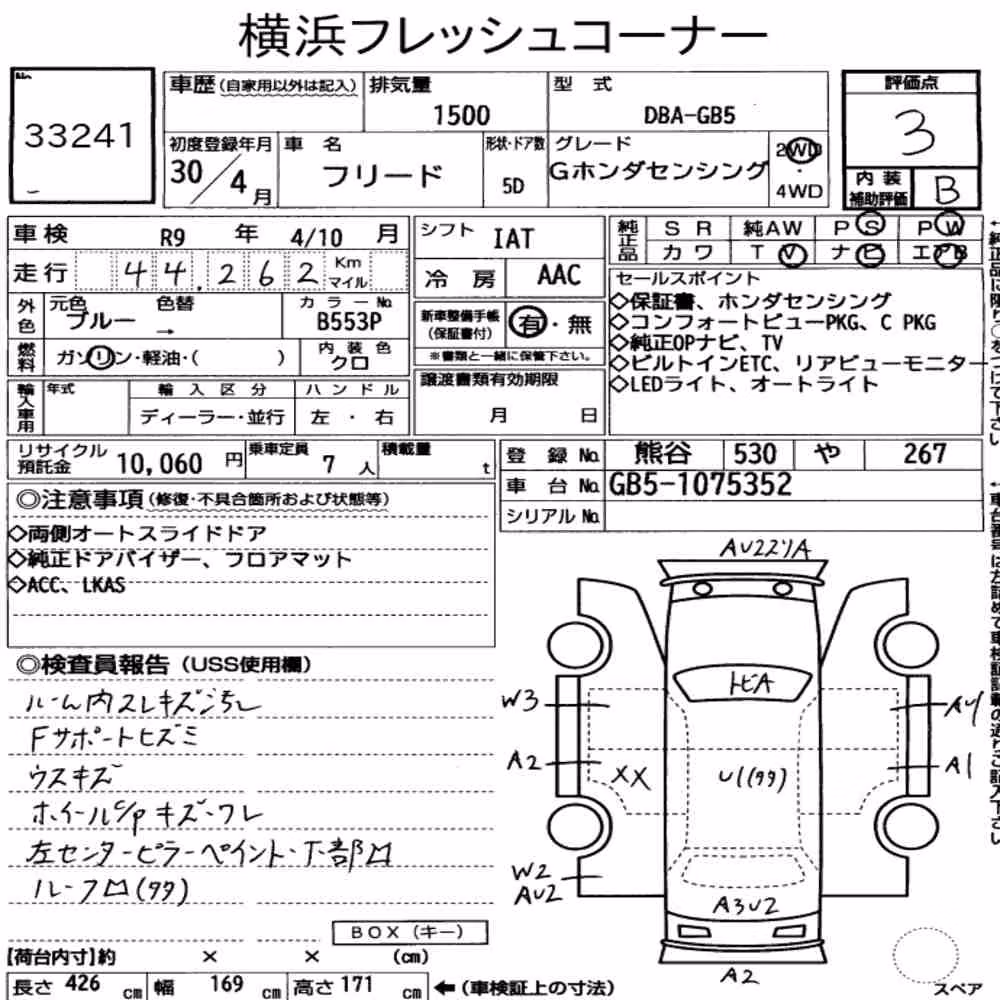 横浜フレッシュコーナー
33241
車歴(自家用以外は記入) 排気量 1500 型式 DBA-GB5
評価点 3
初度登録年月 30/4月 車名 フリード 形状・ドア数 5D グレード Gホンダセンシング 2WD・4WD
内装補助評価 B
車検 R9年 4/10月
走行 44,262 Km マイル
シフト IAT
冷房 AAC
純正品 SR 純AW PS PW
カワ TV ナビ エアB
外色 元色 ブルー 色替 → カラーNo B553P
燃料 ガソリン・軽油・( ) 内装色 クロ
新車整備手帳(保証書付) 有・無
※書類と一緒に保管下さい。
セールスポイント
◇保証書、ホンダセンシング
◇コンフォートビューPKG、C PKG
◇純正OPナビ、TV
◇ビルトインETC、リアビューモニター
◇LEDライト、オートライト
輸入車用 年式 輸入区分 ディーラー・並行 ハンドル 左・右
譲渡書類有効期限 月 日
リサイクル預託金 10,060円 乗車定員 7人 積載量 t
登録No. 熊谷 530 や 267
車台No. GB5-1075352
シリアルNo.
◎注意事項(修復・不具合箇所および状態等)
◇両側オートスライドドア
◇純正ドアバイザー、フロアマット
◇ACC、LKAS
◎検査員報告(USS使用欄)
ルーム内スレキズ汚レ
Fサポートヒズミ
ウスキズ
ホイールc/pキズ・ワレ
左センターピラーペイント・下部ロ
ルーフロ(タタ)
BOX(キー)
【荷台内寸】約 × × (cm)
長さ 426cm 幅 169cm 高さ 171cm ←(車検証上の寸法)
トビA
W3
A2
XX
U1(タタ)
A1
W2
AU2
A3U2
A2
スペア